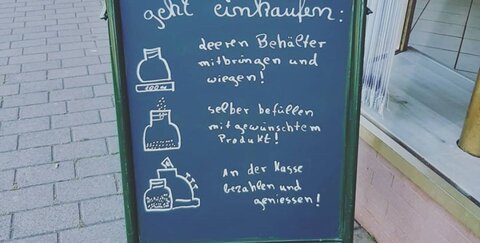 geht einkaufen:
leeren Behälter
mitbringen und
wiegen!
100 g
selber befüllen
mit gewünschtem
Produkt!
An der Kasse
bezahlen und
geniessen!